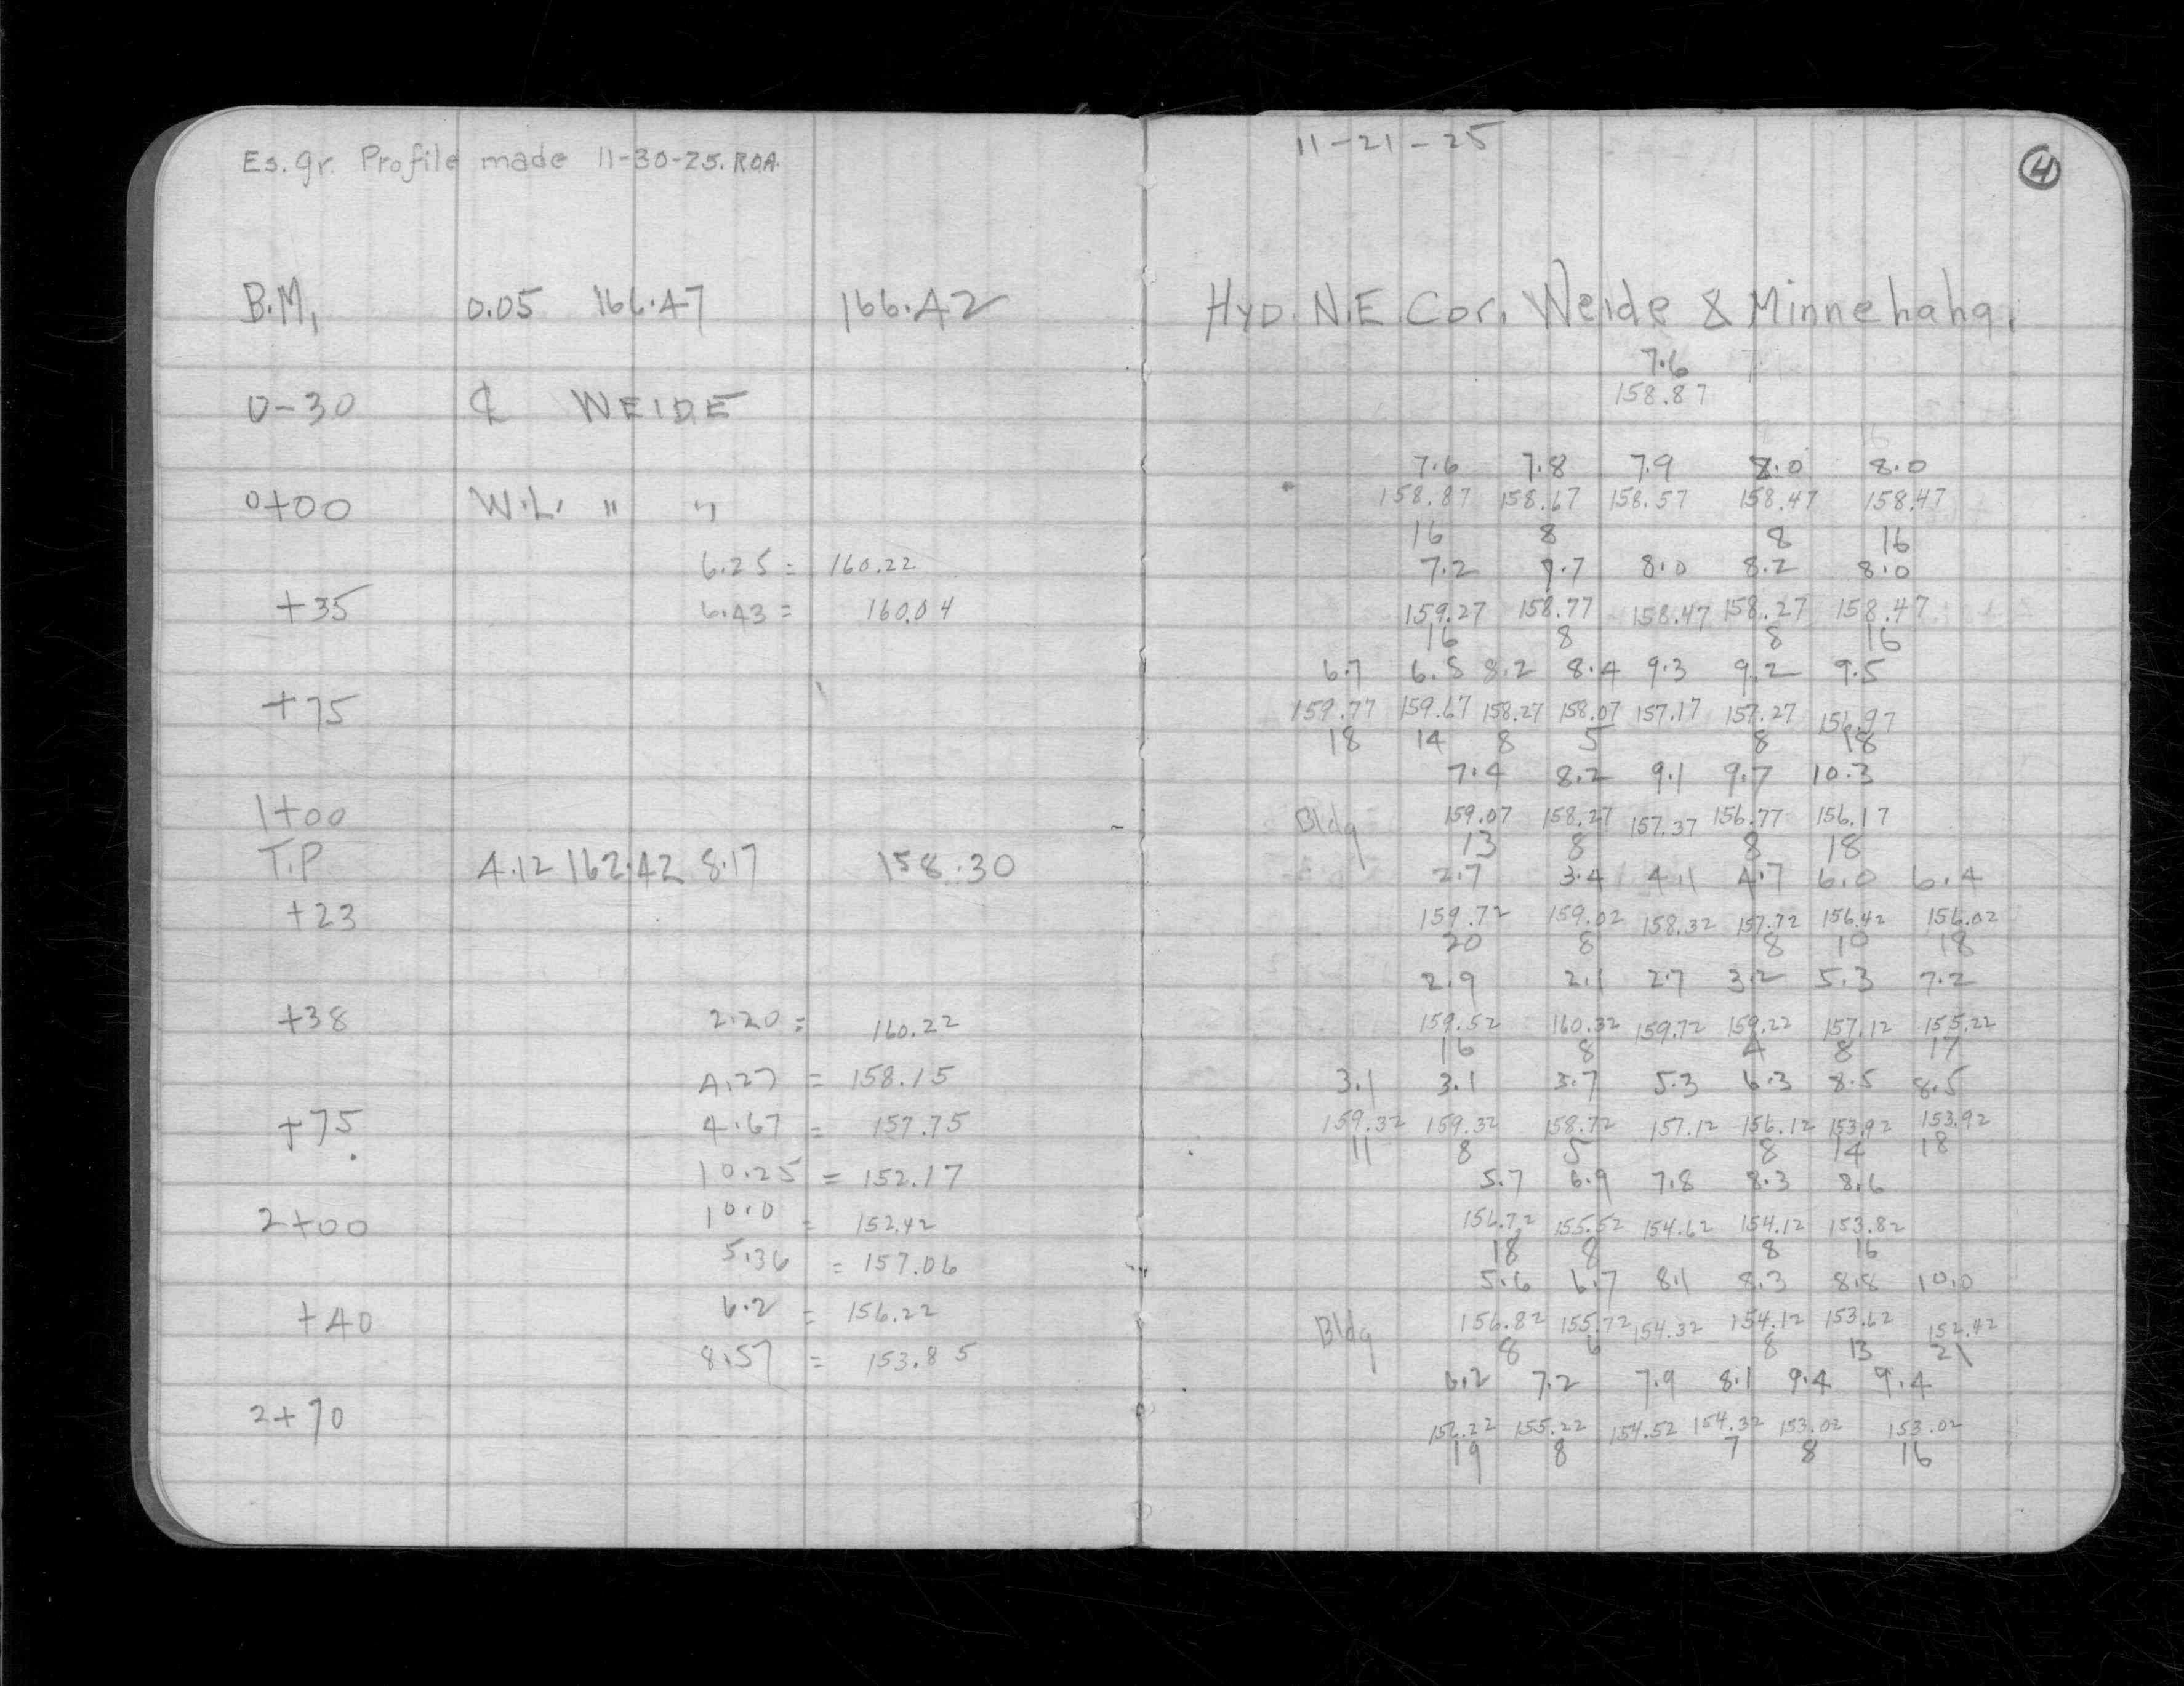 Es. gr. Profile made 11-30-25. R.O.A.
B.M. 0.05 166.47 166.42
0-30 ℄ WEIDE
0+00 W.L. " "
6.25 = 160.22
+35 6.43 = 160.04
+75
1+00
T.P. 4.12 162.42 8.17 158.30
+23
+38 2.20 = 160.22
4.27 = 158.15
+75 4.67 = 157.75
10.25 = 152.17
2+00 10.0 = 152.42
5.36 = 157.06
+40 6.2 = 156.22
8.57 = 153.85
2+70
11-21-25
4
Hyd. N.E Cor. Weide & Minnehaha.
7.6
158.87
7.6 7.8 7.9 8.0 8.0
158.87 158.67 158.57 158.47 158.47
16 8 8 16
7.2 7.7 8.0 8.2 8.0
159.27 158.77 158.47 158.27 158.47
16 8 8 16
6.7 6.8 8.2 8.4 9.3 9.2 9.5
159.77 159.67 158.27 158.07 157.17 157.27 156.97
18 14 8 5 8 18
7.4 8.2 9.1 9.7 10.3
Bldg 159.07 158.27 157.37 156.77 156.17
13 8 8 18
2.7 3.4 4.1 4.7 6.0 6.4
159.72 159.02 158.32 157.72 156.42 156.02
20 8 8 10 18
2.9 2.1 2.7 3.2 5.3 7.2
159.52 160.32 159.72 159.22 157.12 155.22
16 8 4 8 17
3.1 3.1 3.7 5.3 6.3 8.5 8.5
159.32 159.32 158.72 157.12 156.12 153.92 153.92
11 8 5 8 14 18
5.7 6.9 7.8 8.3 8.6
156.72 155.52 154.62 154.12 153.82
18 8 8 16
5.6 6.7 8.1 8.3 8.8 10.0
Bldg 156.82 155.72 154.32 154.12 153.62 152.42
8 6 8 13 21
6.2 7.2 7.9 8.1 9.4 9.4
156.22 155.22 154.52 154.32 153.02 153.02
19 8 7 8 16